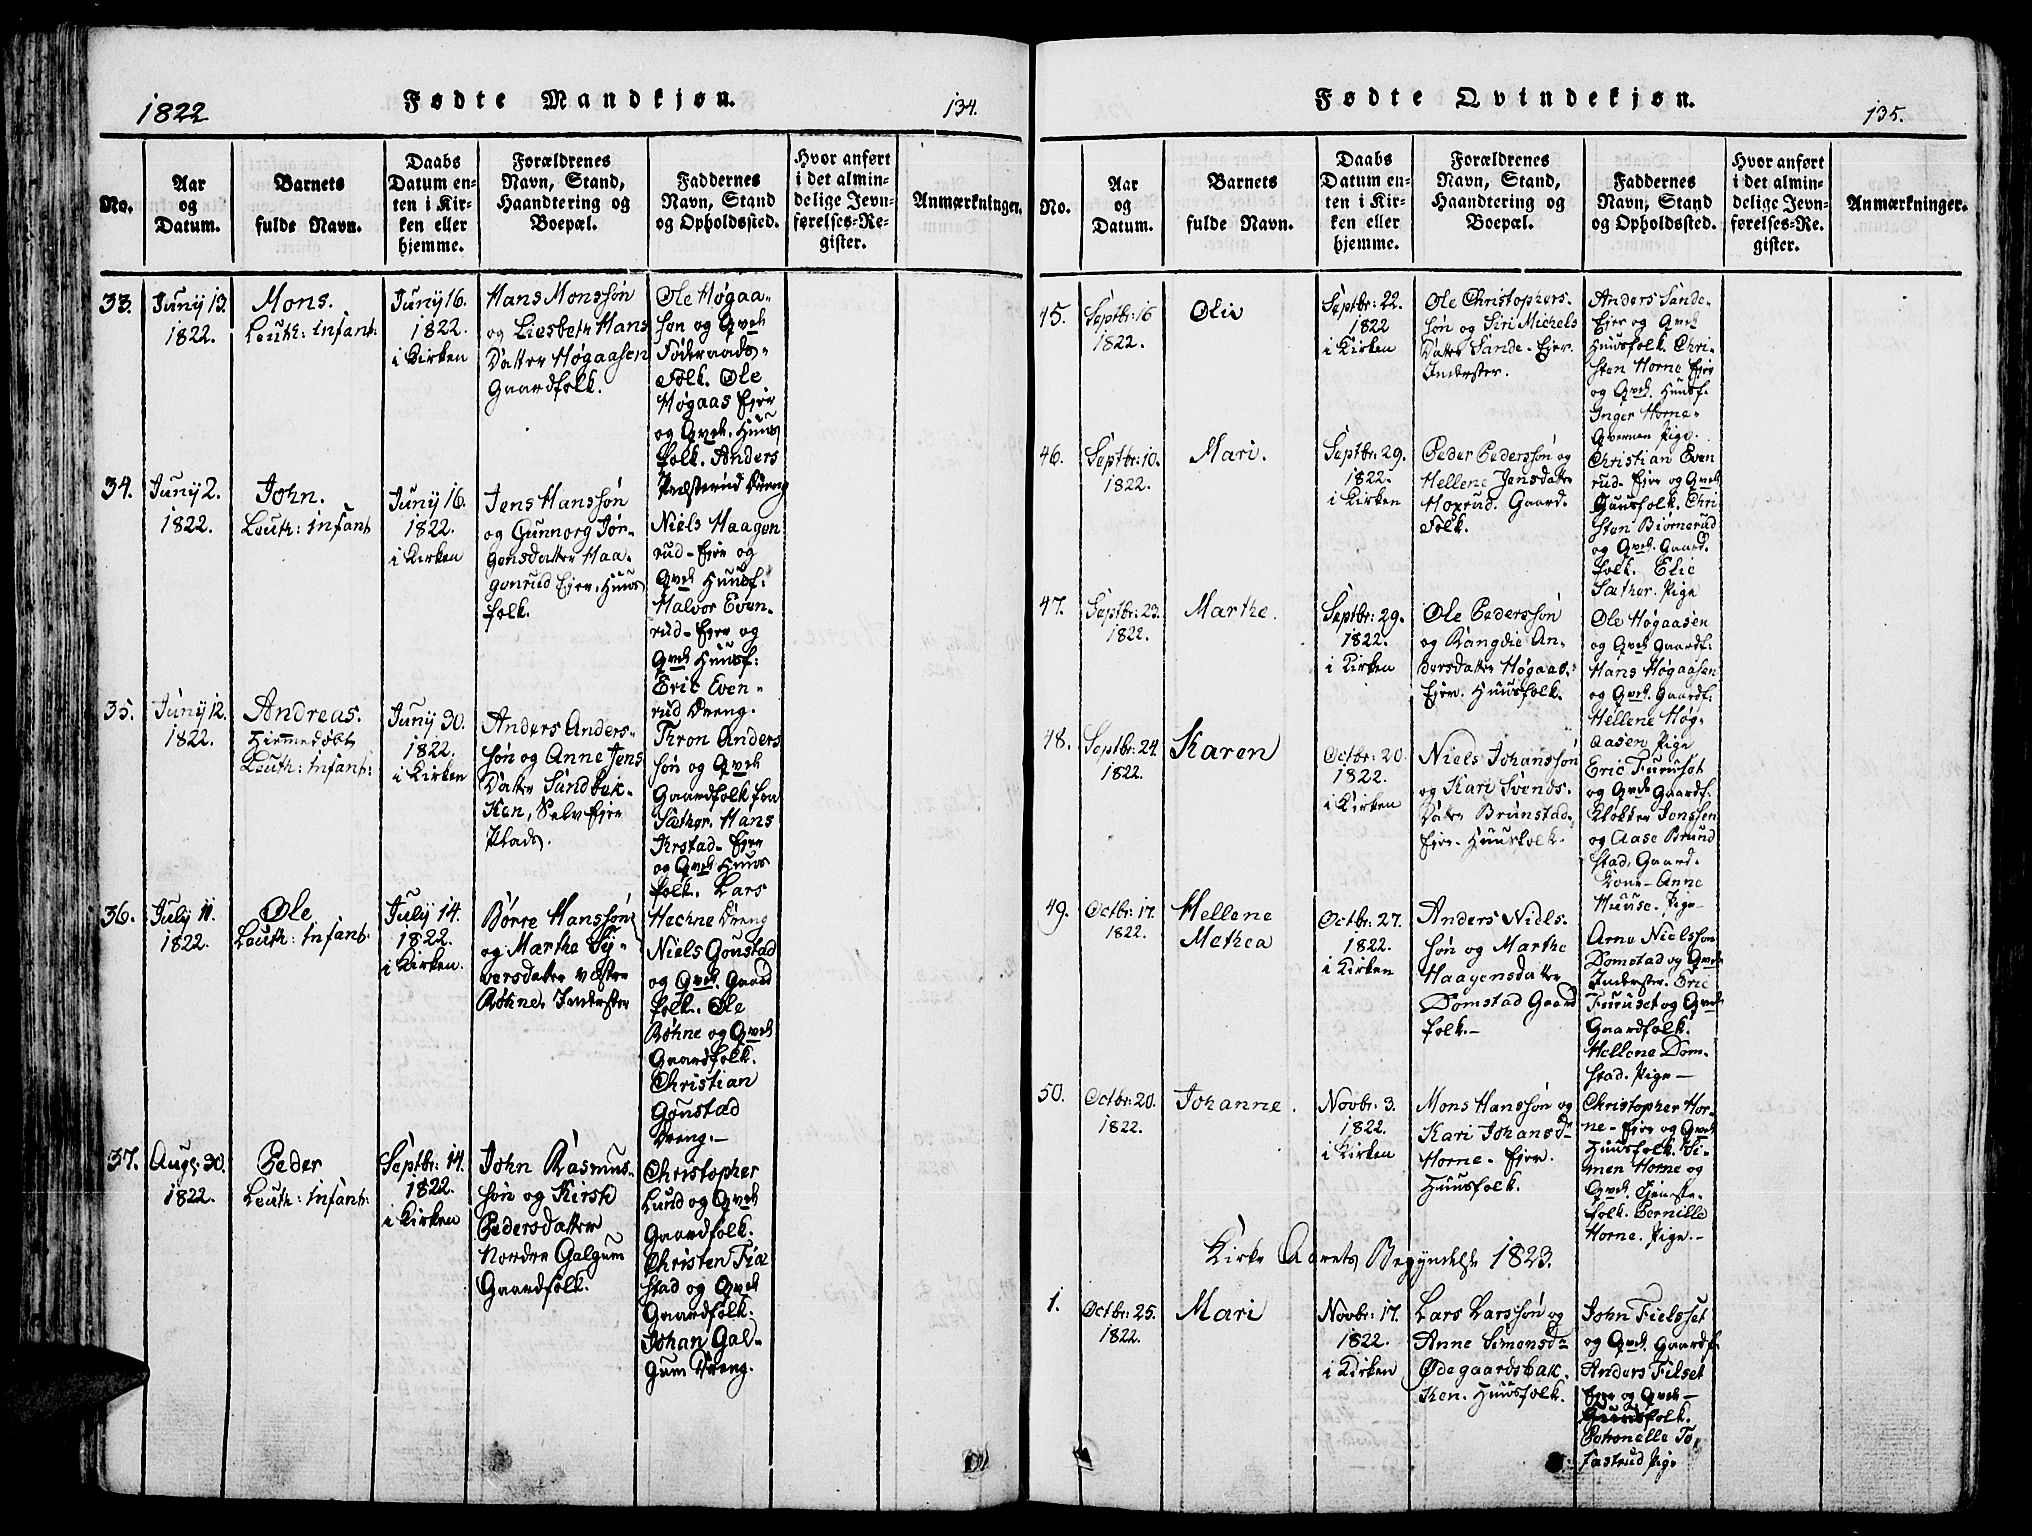 1822
Fødte Mandkjøn.
134.
No.
Aar
og
Datum.
Barnets
fulde Navn.
Daabs
Datum en-
ten i Kir-
ken eller
hjemme.
Forældrenes
Navn, Stand,
Haandtering og
Boepæl.
Faddernes
Navn, Stand
og Opholdssted.
Hvor anført
i det almin-
delige Jevn-
førelses-Re-
gister.
Anmærkninger.
33.
Juny 13.
1822.
Mons.
Leuth: infant:
Juny 16.
1822.
i Kirken
Hans Monssøn
og Liesbeth Hans
Datter Høgaasen
Gaardfolk.
Ole Høgaa-
sen og Qvde
Føderaads-
Folk. Ole
Høgaas Ejer
og Qvde. Huus
folk. Anders
Præsterud Dreng
34.
Juny 2.
1822.
John.
Leuth: infant
Juny 16.
1822.
i Kirken
Jens Hanssøn
og Gunnorg Jør-
gensdatter Haa-
genrud Ejer. Huus
folk.
Niels Haagen
rud- Ejer og
Qvde Huusf:
Halvor Even-
rud- Ejer og
Qvde Huusf:
Eric Even-
rud Dreng.
35.
Juny 12.
1822.
Andreas.
Hiemmedøbt
Leuth: infant:
Juny 30.
1822.
i Kirken
Anders Anders-
søn og Anne Jens
Datter Sandbak-
ken, Selv Ejer
Plads.
Thron Anders
søn og Qvde
Gaardfolk paa
Sæther. Hans
Krstad- Ejer
og Qvde Huus
folk. Lars
Hechne Dreng
36.
July 11.
1822.
Ole
Leuth: infant:
July 14.
1822.
i Kirken.
Børre Hanssøn
og Marthe Sy-
versdatter Vestre
Røhne. Inderster
Niels Gonstad
og Qvde. Gaard
folk. Ole
Røhne og Qvde
Gaardfolk.
Christian
Gonstad
Dreng.-
37.
Augs: 30.
1822.
Peder
Leuth: infant:
Septbr: 14.
1822.
i Kirken
John Rasmus-
søn og Kirsti
Pedersdatter
Nordre Galgum
Gaardfolk.
Christopher
Lund og Qvde
Gaardfolk.
Christen Fiæ
stad og Qvde
Gaardfolk.
Johan Gal-
gum Dreng.
Fødte Qvindekjøn.
135.
No.
Aar
og
Datum.
Barnets
fulde Navn.
Daabs
Datum en-
ten i Kir-
ken eller
hjemme.
Forældrenes
Navn, Stand,
Haandtering og
Boepæl.
Faddernes
Navn, Stand
og Opholdssted.
Hvor anført
i det almin-
delige Jevn-
førelses-Re-
gister.
Anmærkninger.
45.
Septbr: 16
1822.
Olie
Septbr: 22.
1822
i Kirken
Ole Christophers-
søn og Siri Michels
Datter Sande- Ejer.
Inderster.
Anders Sande-
Ejer og Qvde
Huusfolk. Chri-
sten Horne Ejer
og Qvde. Huusf.
Inger Horne-
Qvernen Pige.
46.
Septbr: 10.
1822.
Mari.
Septbr: 29.
1822.
i Kirken
Peder Pederssøn og
Hellene Jensdatter
Hoxrud. Gaard-
Folk.
Christian Even
rud- Ejer og Qvde
Huusfolk. Chri
sten Biørnerud
og Qvde. Gaard-
folk. Elie
Sæther. Pige
47.
Septbr: 23.
1822.
Marthe.
Septbr: 29.
1822.
i Kirken
Ole Pederssøn
og Rangdie An-
dersdatter Høgaas-
Ejer. Huusfolk.
Ole Høgaasen
og Qvde Gaardf:
Hans Høgaasen
og Qvde. Gaardf.
Hellene Høg-
aasen Pige
48.
Septbr: 24.
1822.
Karen
Octbr: 20.
1822.
i Kirken
Niels Johanssøn
og Kari Svends-
Datter Brunstad-
Ejer. Huusfolk.
Eric Furuset
og Qvde Gaardf.
Klokker Jenssen
og Aase Brund
stad. Gaard-
Kone- Anne
Huuse. Pige-
49.
Octbr: 17.
1822.
Hellene
Methea
Octbr: 27.
1822.
i Kirken
Anders Niels-
søn og Marthe
Haagensdatter
Domstad Gaard
folk.-
Arne Nielssøn
Domstad og Qvde
Inderster. Eric
Furuset og Qvde
Gaardfolk.
Hellene Dom-
stad. Pige-
50.
Octbr: 20.
1822.
Johanne.
Novbr: 3.
1822.
i Kirken
Mons Hanssøn og
Kari Johansdr
Horne- Ejer.
Huusfolk.
Christopher Hor-
ne- Ejer og Qvde
Huusfolk. Si-
men Horne og
Qvde. Tjeneste-
folk. Pernille
Horne. Pige-
Kirke Aarets Begyndelse 1823.
1.
Octbr: 25.
1822.
Mari
Novbr: 17.
1822.
i Kirken
Lars Larssøn og
Anne Simensdr
Ødegaardsbak-
ken. Huusfolk.
John Fielsset
og Qvde. Gaardf.
Anders Filset
Ejer og Qvde-
Huusfolk.
Pige